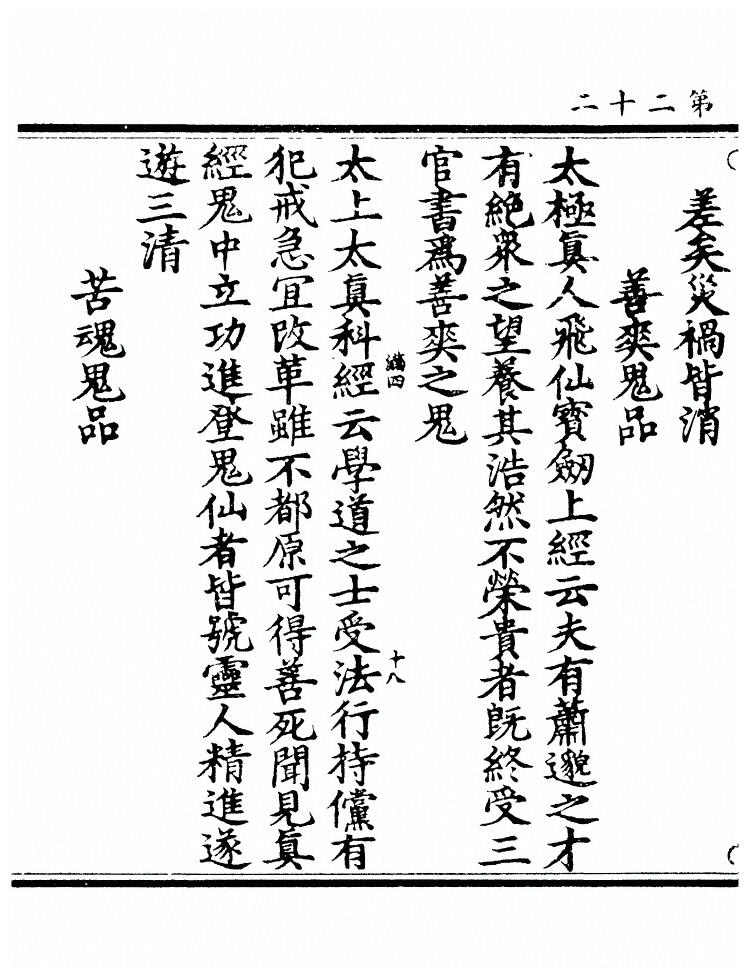 第二十二
差矣災禍皆消
善爽鬼品
太極眞人飛仙寶劒上經云夫有蕭邈之才
有絶衆之望養其浩然不榮貴者旣終受三
官書爲善爽之鬼
滿四
十八
太上太眞科經云學道之士受法行持儻有
犯戒急宜改革雖不都原可得善死聞見眞
經鬼中立功進登鬼仙者皆號靈人精進遂
遊三清
苦魂鬼品